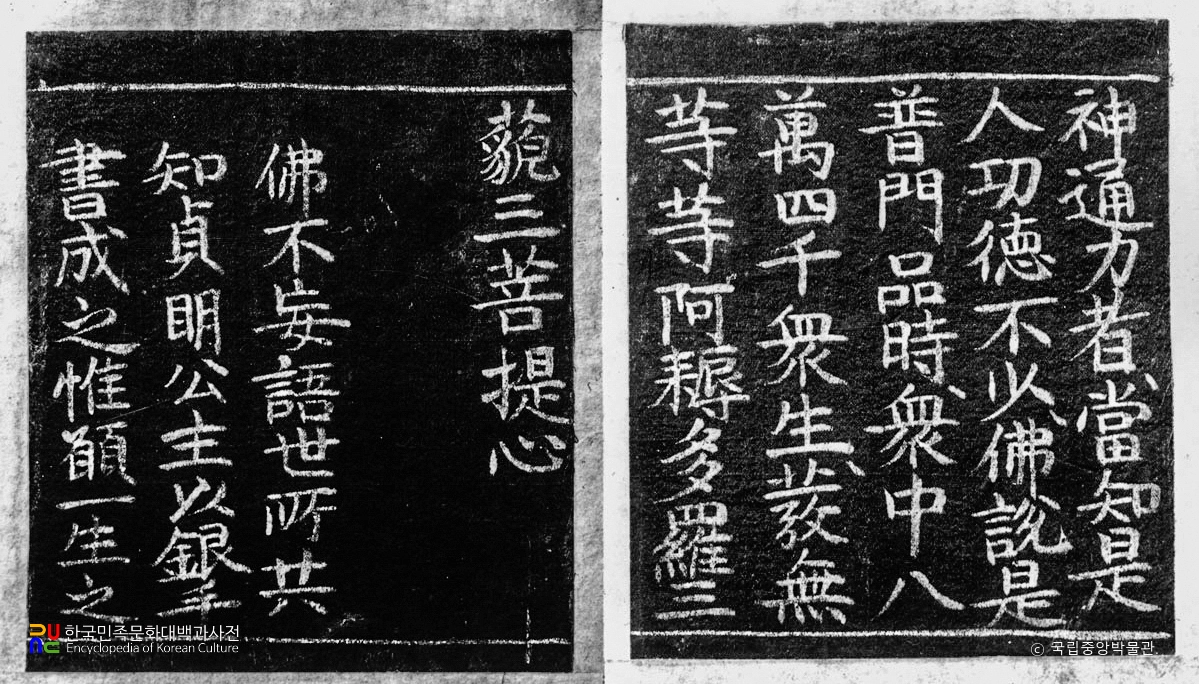 神通力者當知是
人功德不少佛說是
普門品時衆中八
萬四千衆生發無
等等阿耨多羅三
藐三菩提心
佛不妄語世所共
知貞明公主以銀手
書成之惟願一生之
한국민족문화대백과사전
Encyclopedia of Korean Culture
ⓒ 국립중앙박물관